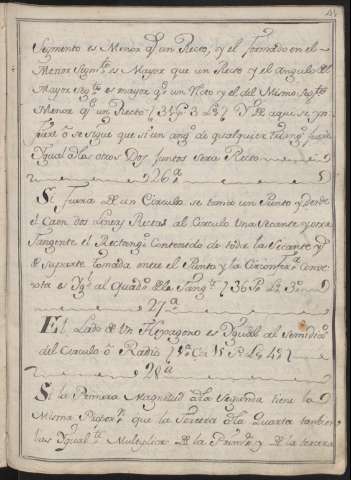 Segmento es Menor qe. un Recto, y el formado en el
Menor Segmto. es Mayor que un Recto y el angulo del
Mayor segto. es mayor qe. un Rcto y el del Mismo segto.
Menor qe. un Recto } 31 Pn. 3 Lo. } Y de aqui se yn
fiere o se sigue que si un ango. de qualquier triango. fuere
Ygual a los otros Dos juntos sera Recto
26a
Si fuera de un Circulo se toma un Punto y desde
el Caen dos Lineas Rectas al Circulo una secante y otra
tangente el Rectango. Contenido de toda la Secante y
de su parte tomada entre el Punto y la Circunfera. Conve
xa es Ygl. al Quado. de la tangte. } 36 Po. Lo. 3o.
27a
El Lado de un Hexagono es Ygual al semidiao.
del Circulo o Radio } 15 Po. Lo. 4o. }
28a
Si la Primera Magnitud a la Segunda tiene la
Misma Propon. que la tercera a la Quarta tambien
las Ygualte. Multiplices de la Primra. y de la tercera